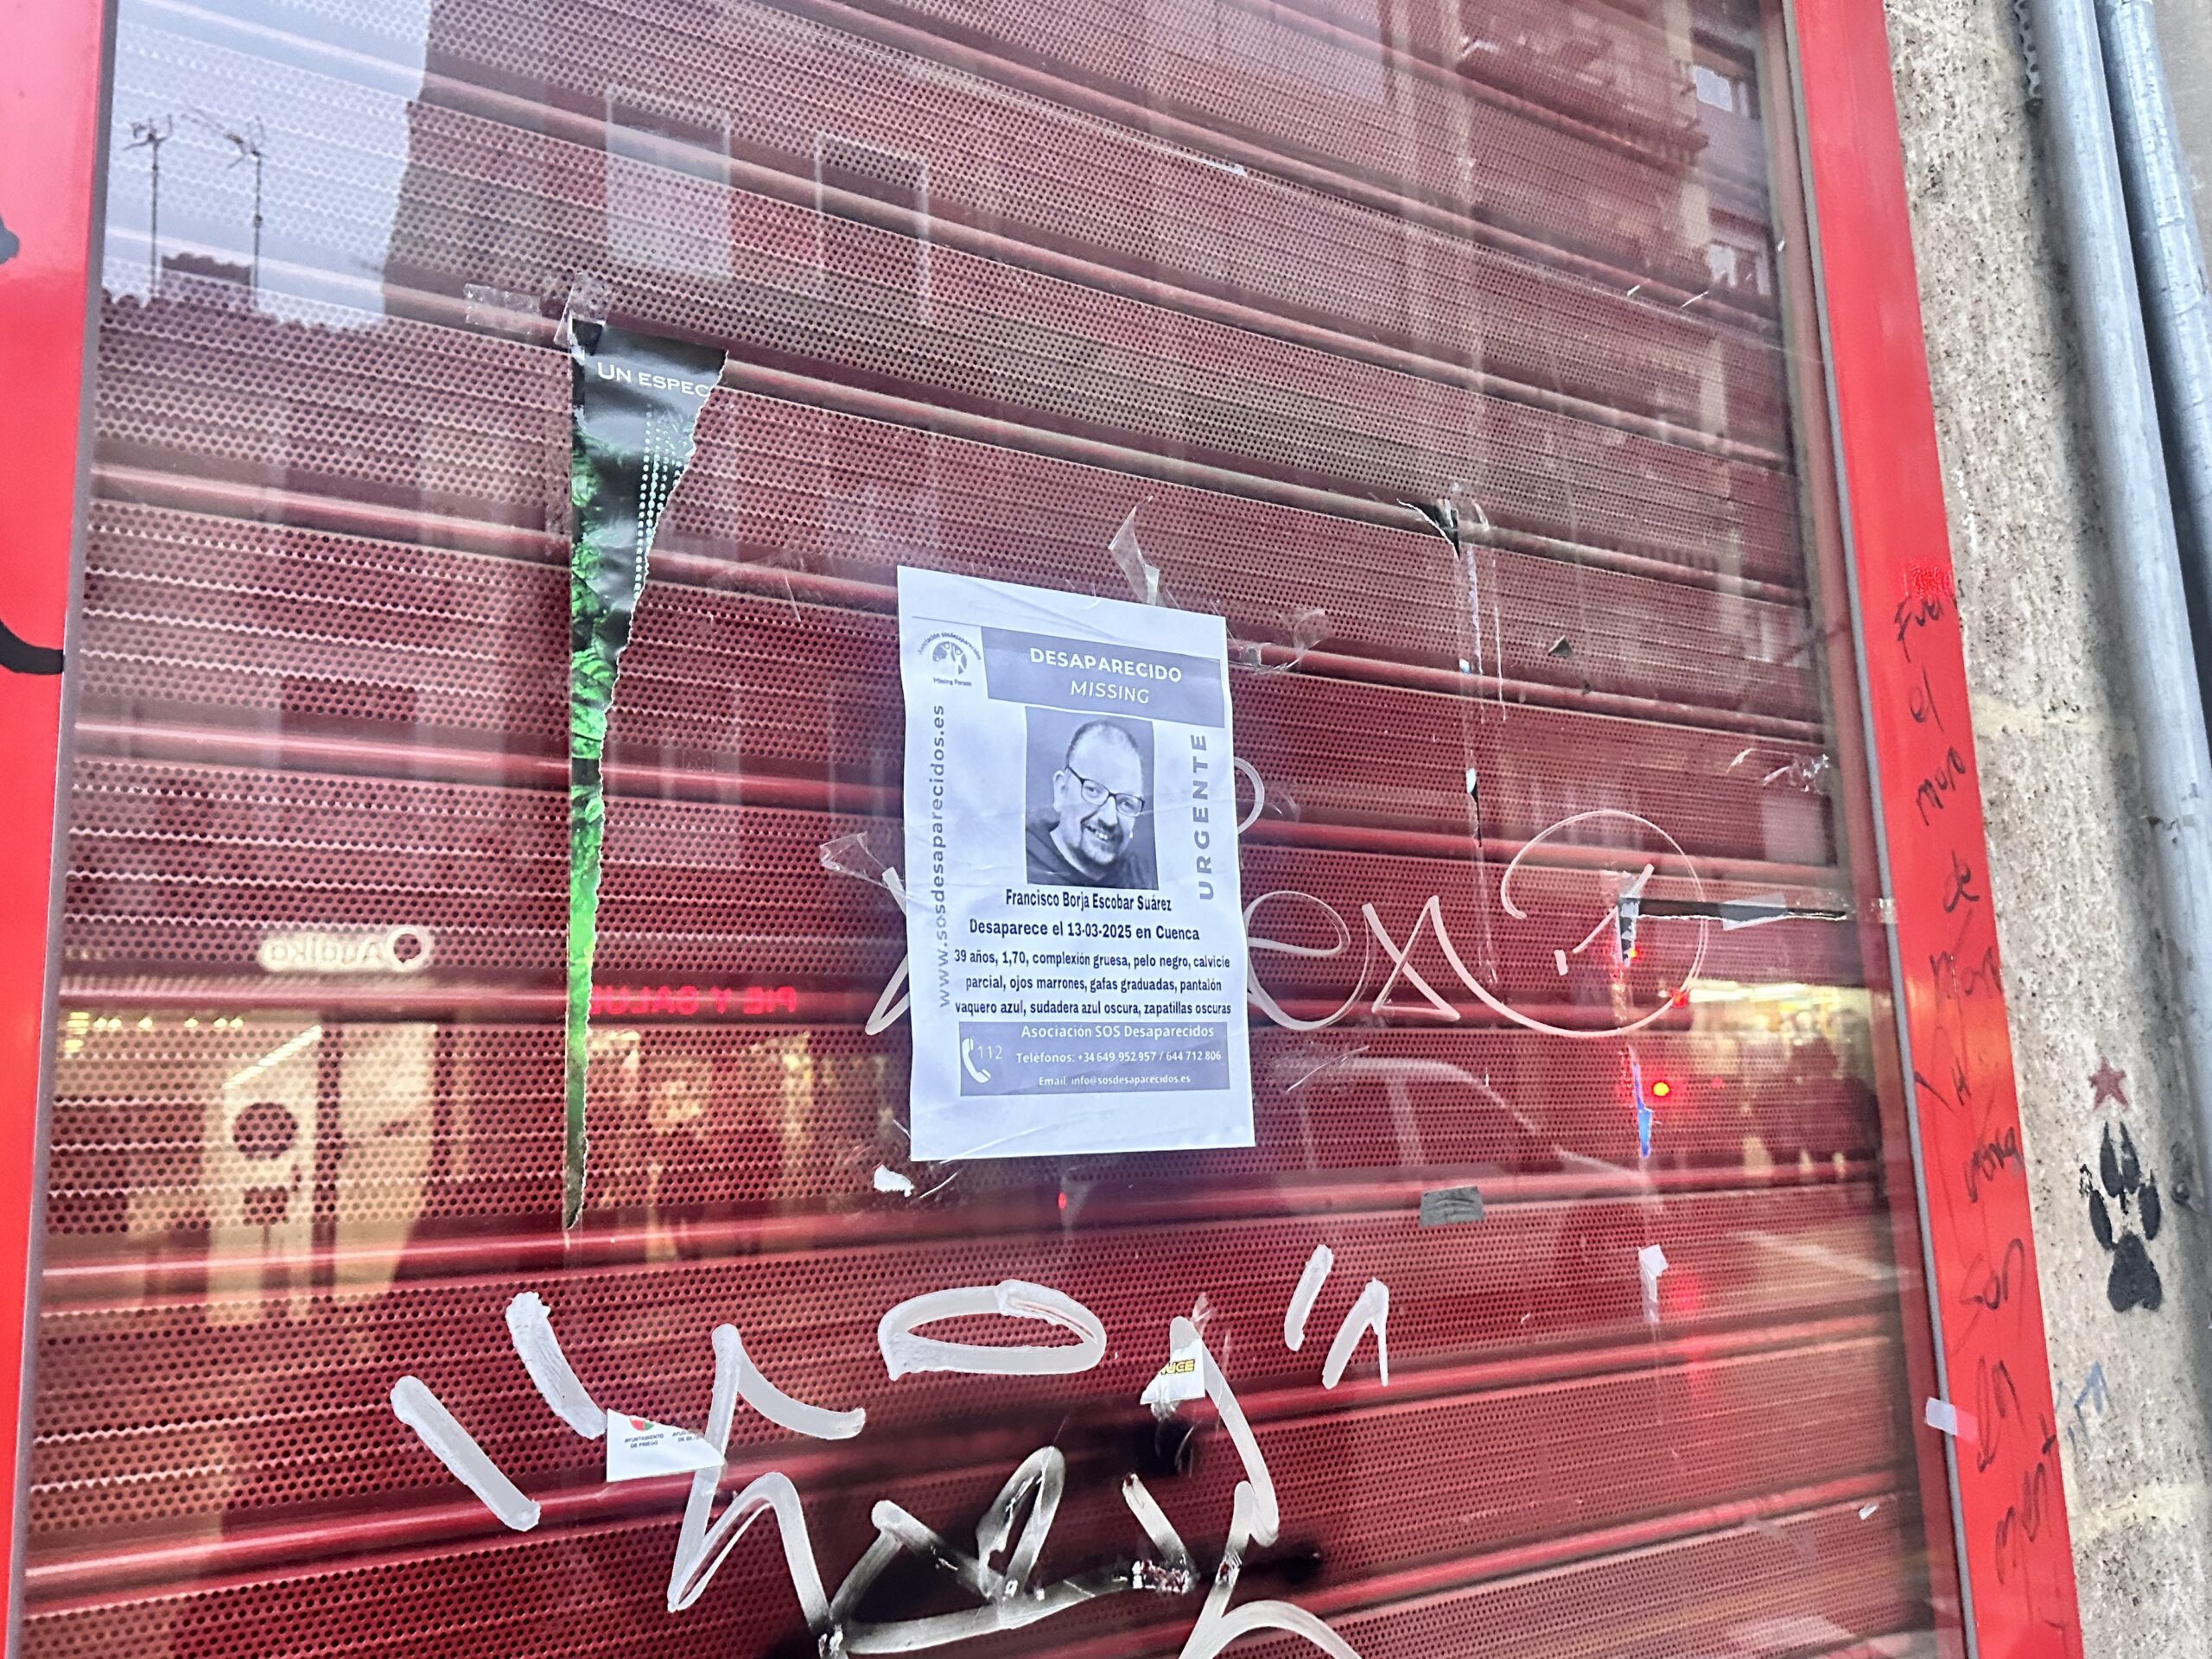 UN ESPEC
Asociación sosdesaparecidos
Missing Person
DESAPARECIDO
MISSING
www.sosdesaparecidos.es
URGENTE
Francisco Borja Escobar Suárez
Desaparece el 13-03-2025 en Cuenca
39 años, 1,70, complexión gruesa, pelo negro, calvicie
parcial, ojos marrones, gafas graduadas, pantalón
vaquero azul, sudadera azul oscura, zapatillas oscuras
Asociación SOS Desaparecidos
112
Teléfonos: +34 649 952 957 / 644 712 806
Email info@sosdesaparecidos.es
Audika
PIE Y SALU
AYUNTAMIENTO
DE PRIEGO
el
de
son